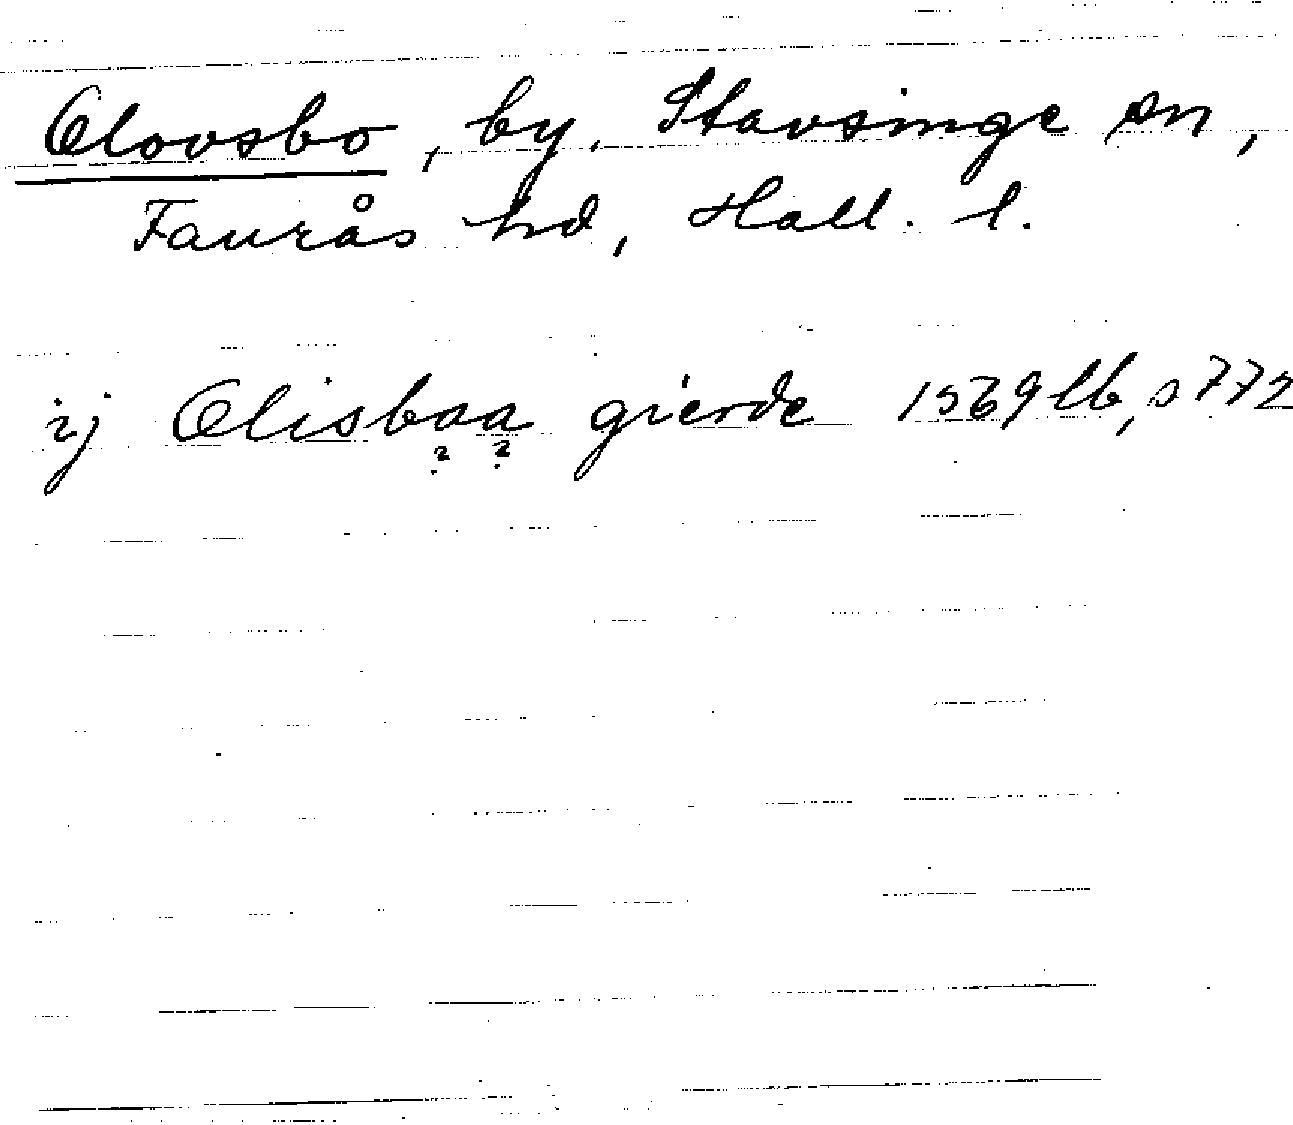 Olovsbo, by, Stavsinge sn,
Faurås hd, Hall. l.
ij Olisbaa gierde 1569 lb, s 772
? ?